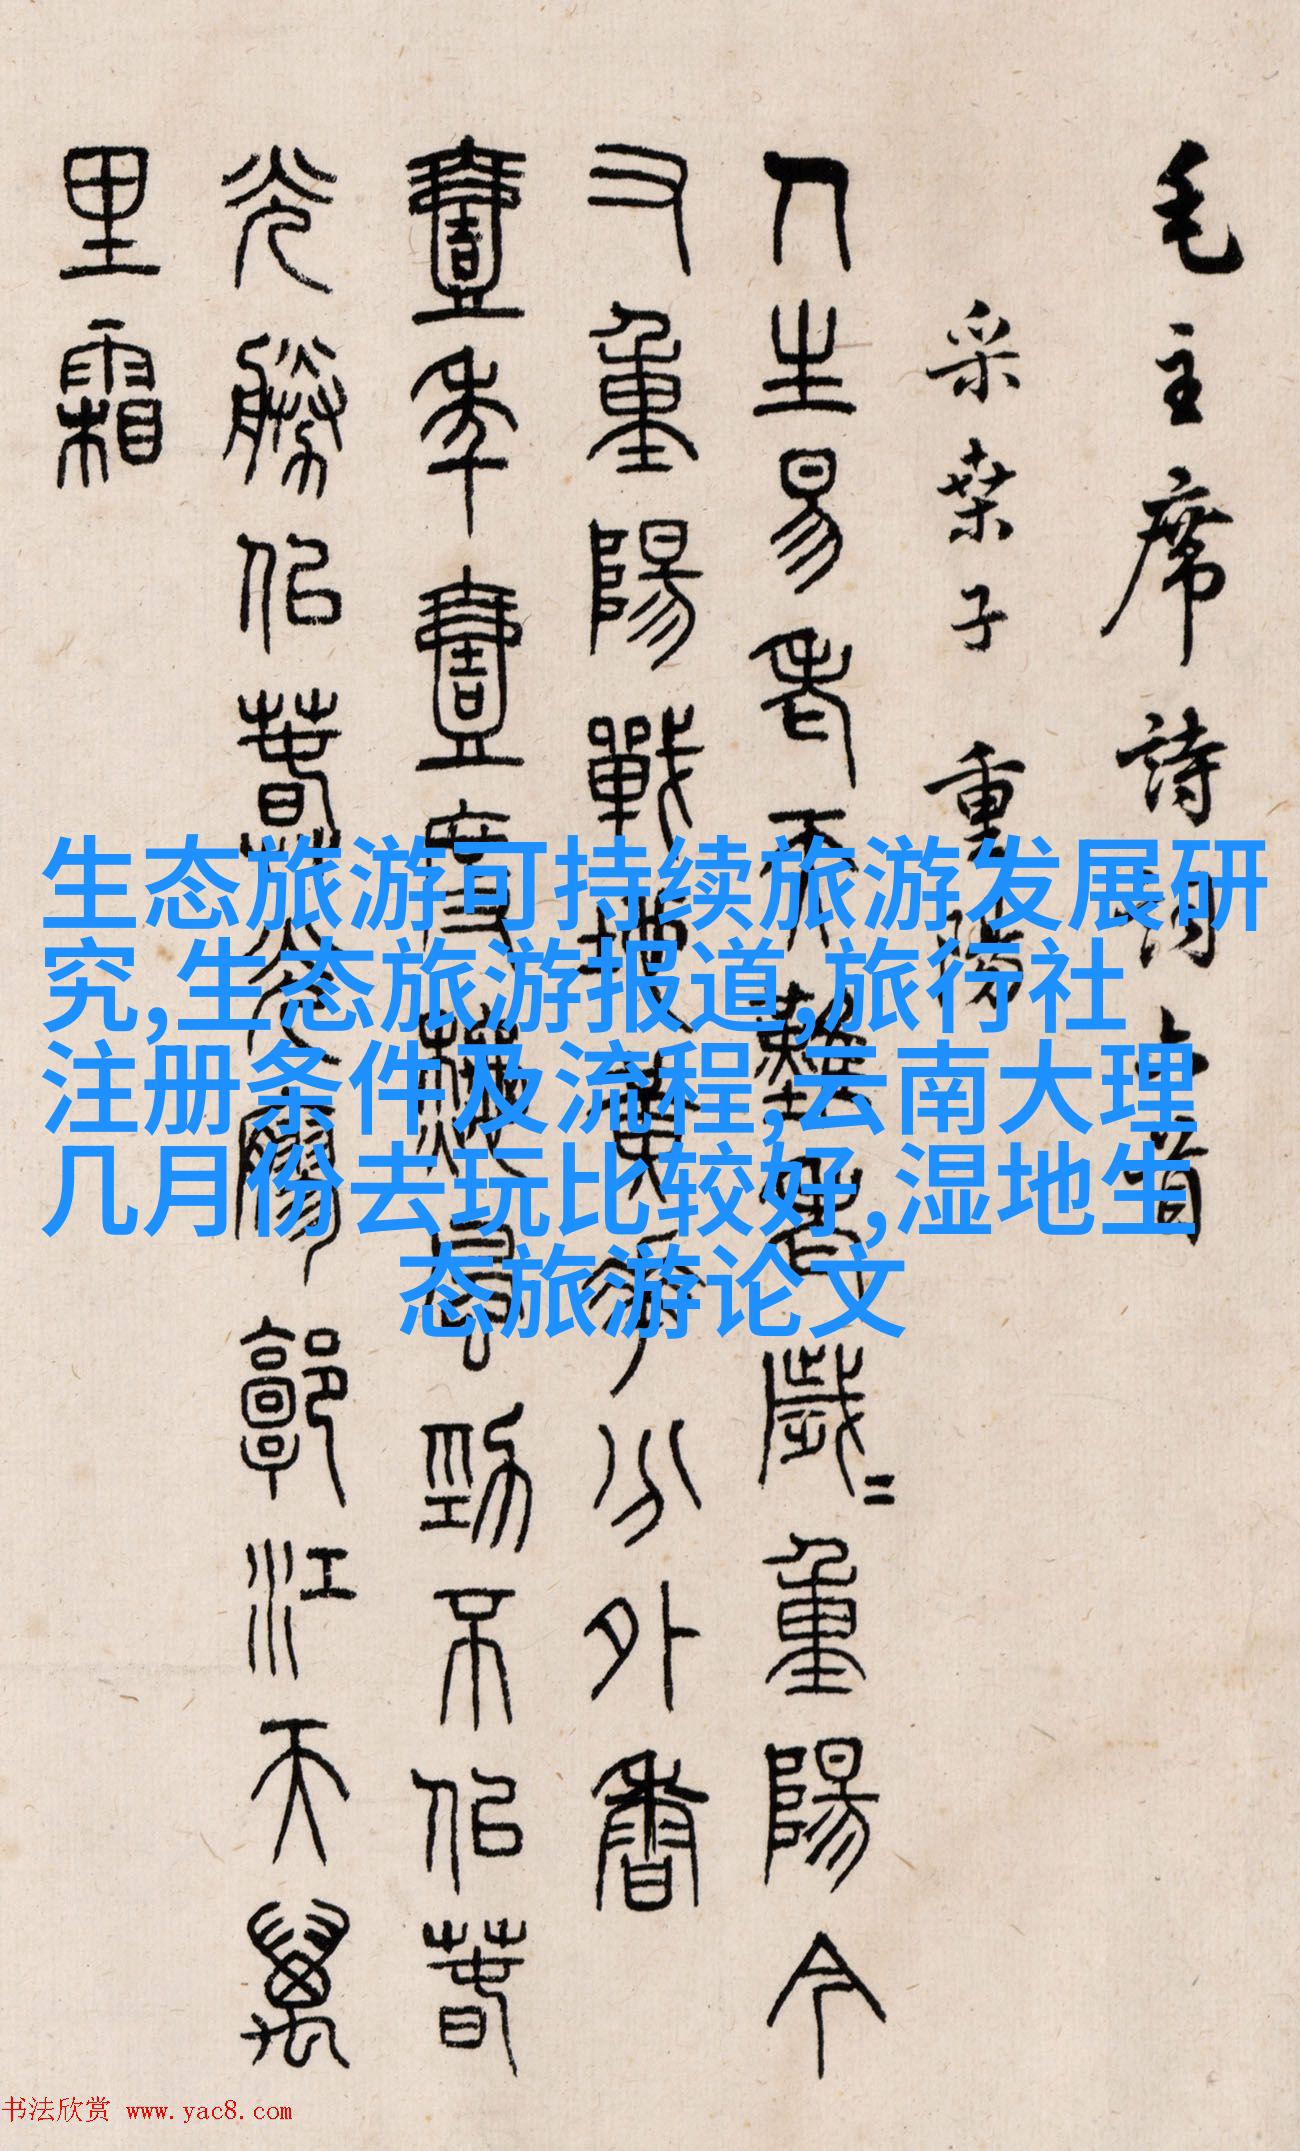 毛主席詩詞 首
采桑子 重陽
人生易老天難老歲〻重陽今
又重陽戰地黃華分外香
壹年壹度秋風勁不佀春
光勝佀春光寥郭江天萬
里霜
生态旅游可持续旅游发展研
究,生态旅游报道,旅行社
注册条件及流程,云南大理
几月份去玩比较好,湿地生
态旅游论文
书法欣赏 www.yac8.com